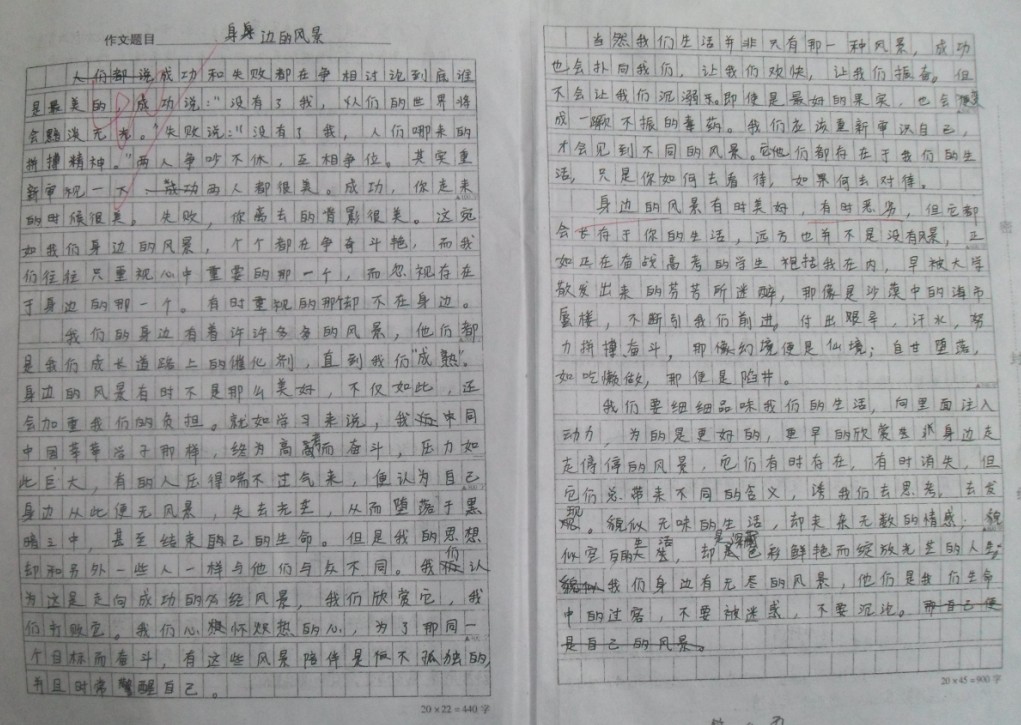 作文题目 身边的风景
成功和失败都在争相讨论到底谁
是最美的，成功说："没有了我，人们的世界将
会黯淡无光。"失败说："没有了我，人们哪来的
拼搏精神。"两人争吵不休，互相争位。其实重
新审视一下，两人都很美。成功，你走来
的时候很美。失败，你离去的背影很美。这宛
如我们身边的风景，个个都在争奇斗艳，而我
们往往只重视心中重要的那一个，而忽视存在
于身边的那一个。有时重视的那个却不在身边。
我们的身边有着许许多多的风景，他们都
是我们成长道路上的催化剂，直到我们"成熟"。
身边的风景有时不是那么美好，不仅如此，还
会加重我们的负担。就如学习来说，我同
中国莘莘学子那样，终为高考而奋斗，压力如
此巨大，有的人压得喘不过气来，便认为自己
身边从此便无风景，失去光芒，从而堕落于黑
暗之中，甚至结束自己的生命。但是我的思想
却和另外一些人一样与他们与众不同。我们认
为这是走向成功的必经风景，我们欣赏它，我
们打败它。我们心怀炽热的心，为了那同一
个目标而奋斗，有这些风景陪伴是不孤独的，
并且时常警醒自己。
20×22=440字
当然我们生活并非只有那一种风景，成功
也会扑向我们，让我们欢快，让我们振奋。但
不会让我们沉溺，即便是最好的果实，也会变
成一蹶不振的毒药。我们应该重新审识自己，
才会见到不同的风景。它他们都存在于我们的生
活，只是你如何去看待，如果何去对待。
身边的风景有时美好，有时恶劣，但它都
会长存于你的生活，远方也并不是没有风景，正
如正在奋战高考的学生包括我在内，早被大学
散发出来的芳苦所迷醉，那像是沙漠中的海市
蜃楼，不断引我们前进。付出艰辛，汗水，努
力拼搏奋斗，那像幻境便是仙境；自甘堕落，
如吃懒做，那便是陷井。
我们要细细品味我们的生活，向里面注入
动力，为的是更好的，更早的欣赏身边走
走停停的风景，它们有时存在，有时消失，但
它们总带来不同的含义，诱我们去思考，去发
现。貌似无味的生活，却夹杂无数的情感；貌
似空白的生活，却是色彩鲜艳而绽放光芒的人生
我们身边有无尽的风景，他们是我们生命
中的过客，不要被迷惑，不要沉沦。而自己便
是自己的风景。
20×45=900字